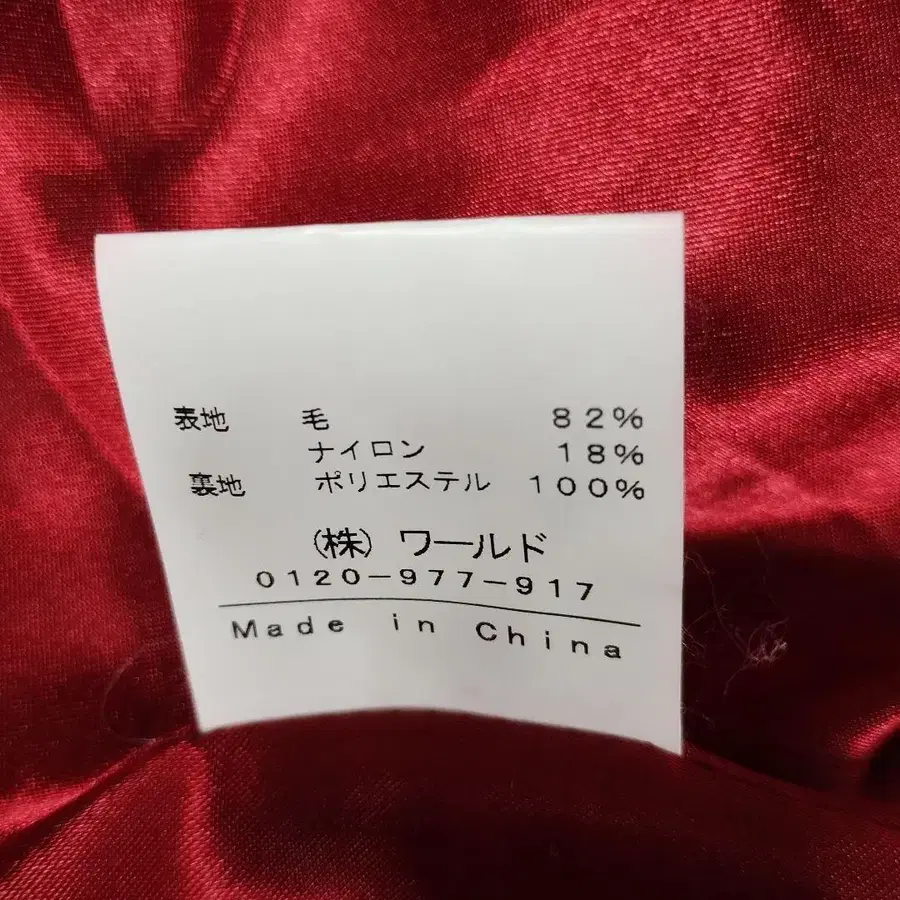 表地 毛 82%
ナイロン 18%
裏地 ポリエステル 100%
(株) ワールド
0120-977-917
Made in China